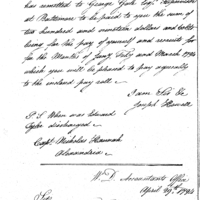 has remitted to George Gale Esqr. Supervisor
at Baltimore to be paid to you the sum of
two hundred and nineteen dollars and
being for the pay of yourself and recruits for
for the Months of Jany. Feby and March 1794
which you will be pleased to pay agreeably
to the inclosed pay roll
I am Sir &c
Joseph Howell
P.S. When was Edward
Capt. Nicholas Hannah
Alexandria
W.D. Accountants Office
April 29th 1794
Sir